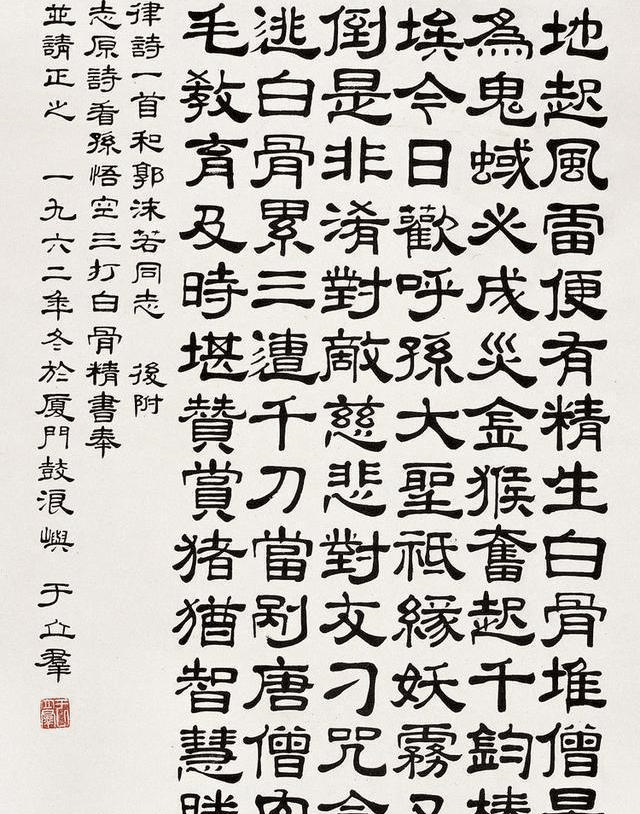 地起風雷便有精生白骨堆僧是
爲鬼蜮必成災金猴奮起千鈞棒
埃今日歡呼孫大聖祇緣妖霧又
倒是非淆對敵慈悲對友刁咒念
逃白骨累三遭千刀當剮唐僧肉
毛教育及時堪贊賞猪猶智慧勝
律詩一首和郭沫若同志 後附
志原詩看孫悟空三打白骨精書奉
並請正之 一九六二年冬於厦門鼓浪嶼 于立羣